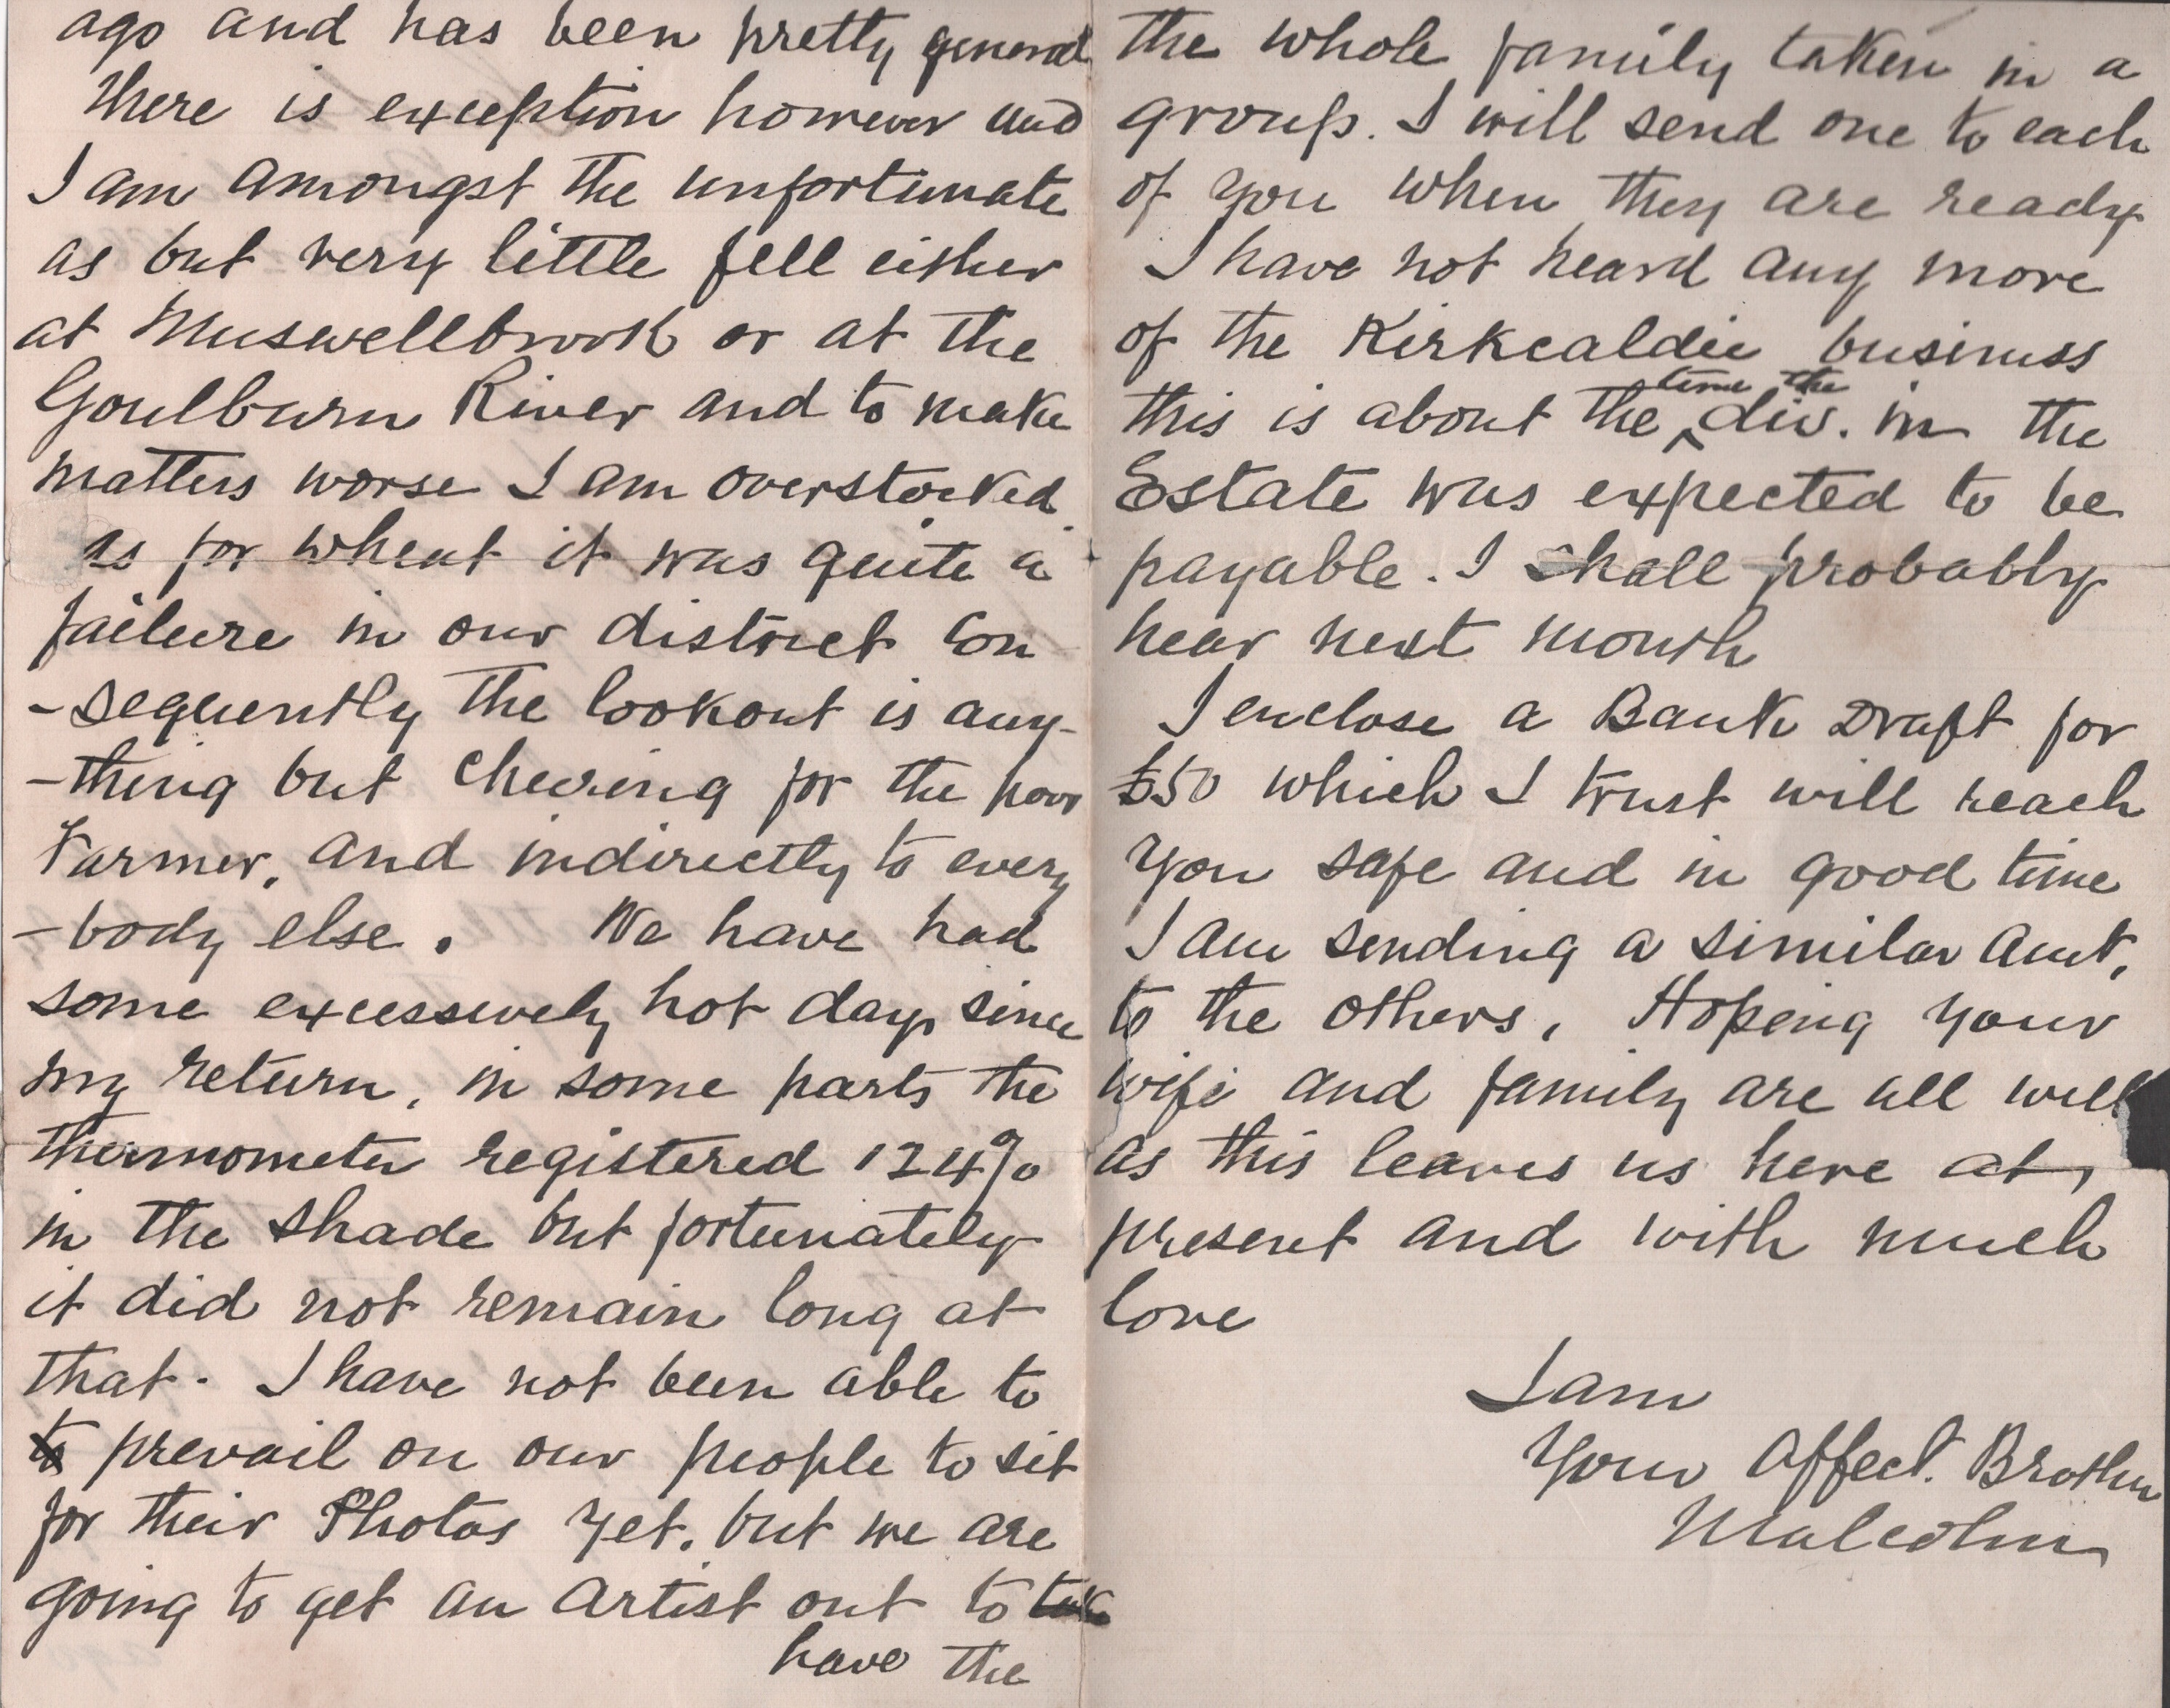 ago and has been pretty general
there is exception however and
I am amongst the unfortunate
as but very little fell either
at Muswellbrook or at the
Goulburn River and to make
matters worse I am overstocked
as for wheat it was quite a
failure in our district con
-sequently the lookout is any-
-thing but cheering for the poor
Farmer, and indirectly to every
-body else. We have had
some excessively hot days since
my return, in some parts the
thermometer registered 124%
in the shade but fortunately
it did not remain long at
that. I have not been able to
to prevail on our people to sit
for their Photos yet. but we are
going to get an artist out to take
have the
the whole family taken in a
group. I will send one to each
of you when they are ready
I have not heard any more
of the Kirkcaldie business
this is about the time the div. in the
Estate was expected to be
payable. I shall probably
hear next month
I enclose a Bank Draft for
£50 which I trust will reach
you safe and in good time
I am sending a similar amt,
to the others, Hoping your
wife and family are all well
as this leaves us here at,
present and with much
love
I am
Your Affect. Brother
Malcolm